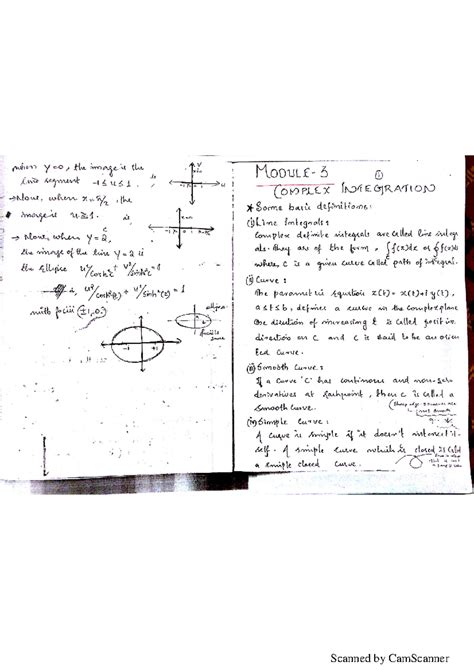 when y=0, the image is the
line segment -1≤u≤1.
→ Now, when x=π/2, the
image is u≥1.
→ Now, when y=2,
the image of the line y=2 is
the ellipse u²/cosh²c + v²/sinh²c = 1
u²/cosh²(2) + v²/sinh²(2) = 1
with focii (±1,0)
-1
+1
MODULE-3
COMPLEX INTEGRATION
* Some basic definitions:
(i) Line Integrals:
Complex definite integrals are called line integ
als. they are of the form, ∫f(z)dz or ∮f(z)dz
where, C is a given curve called path of integra.
(ii) Curve:
The parametric equation z(t) = x(t)+iy(t),
a≤t≤b, defines a curve in the complex plane
the direction of increasing t is called positive
direction on C and C is said to be an orien
ted curve.
(iii) Smooth Curve:
If a curve 'C' has continuous and non-zero
derivatives at each point, then C is called a
smooth curve.
(iv) Simple Curve:
A curve is simple if it doesn't intersect it
self. A simple curve which is closed is called
a simple closed curve.
Scanned by CamScanner